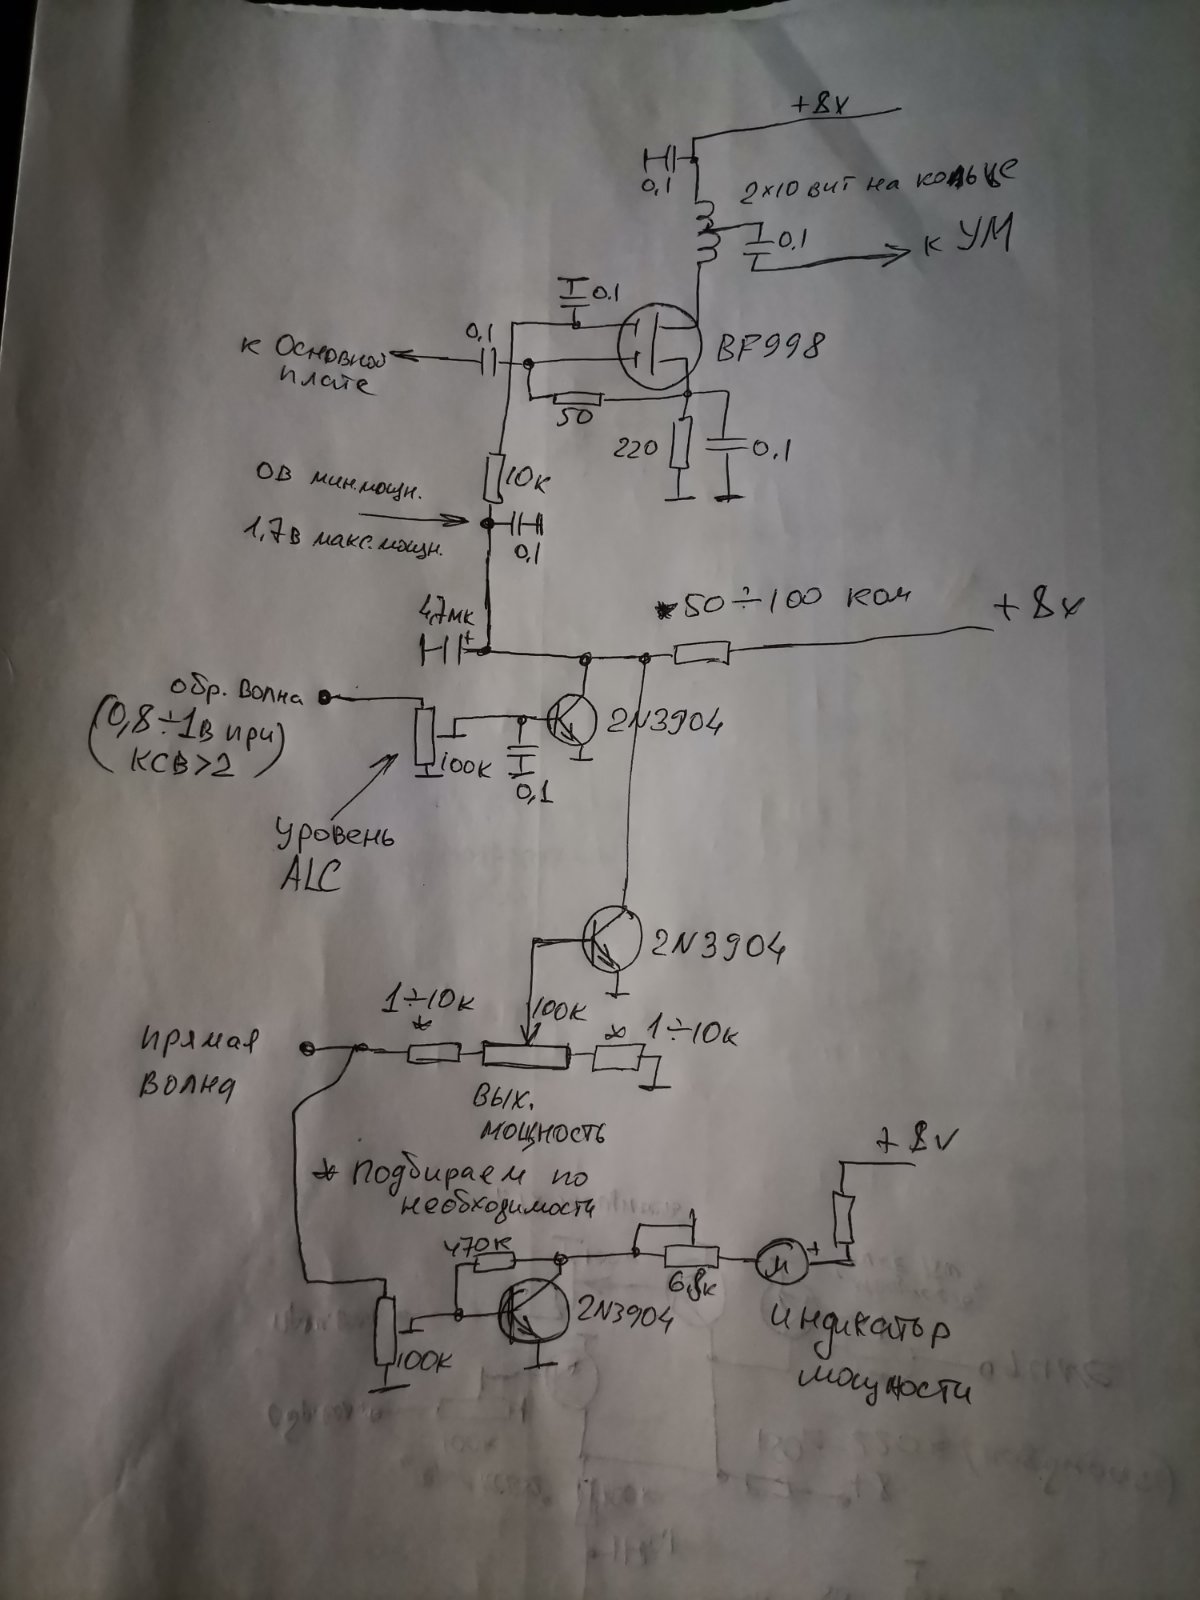 +8v
0,1
2x10 вит на кольце
0,1
к УМ
0,1
0,1
BF998
к Основной
плате
50
220
0,1
10к
0В мин.мощн.
1,7в макс.мощн.
0,1
4,7мк
+
*50÷100 ком
+8v
обр. волна
(0,8÷1в при
КСВ>2)
2N3904
100к
0,1
уровень
ALC
2N3904
1÷10к
*
100к
* 1÷10к
прямая
волна
вых.
мощность
* Подбираем по
необходимости
+8v
470к
6,8к
м
+
2N3904
100к
индикатор
мощности